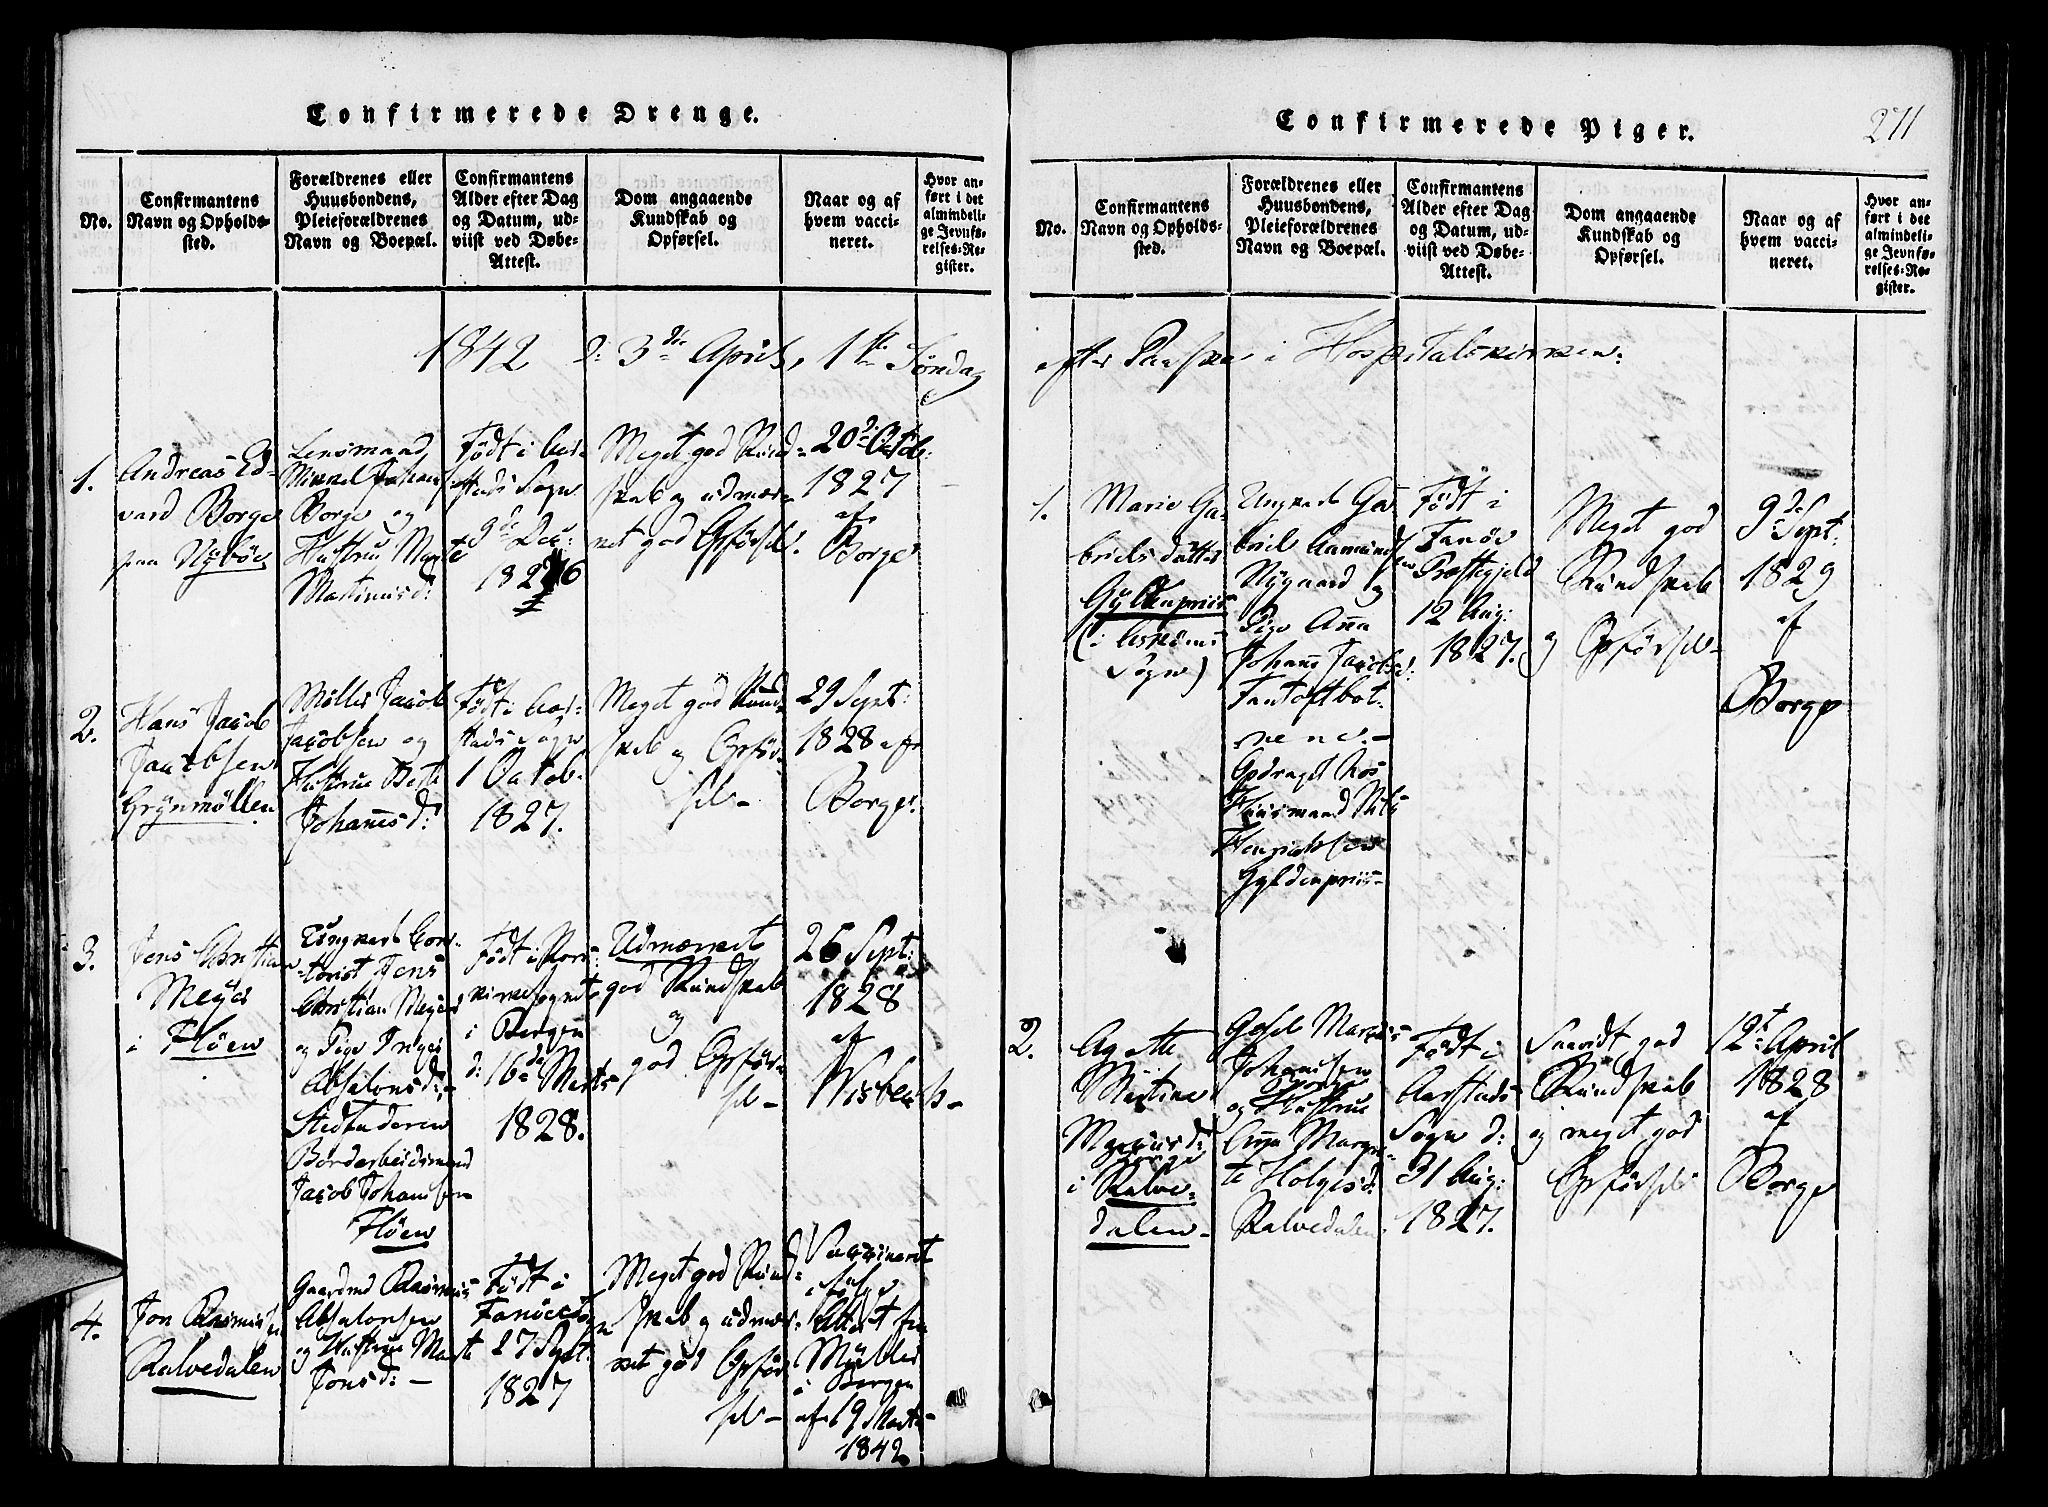 Confirmerede Drenge.
No.
Confirmantens
Navn og Opholds-
sted.
Forældrenes eller
Huusbondens,
Pleieforældrenes
Navn og Boepæl.
Confirmantens
Alder efter Dag
og Datum, ud-
viist ved Døbe-
Attest.
Dom angaaende
Kundskab og
Opførsel.
Naar og af
hvem vacci-
neret.
Hvor an-
ført i det
almindeli-
ge Jevnfø-
relses-Re-
gister.
1842 d: 3die April, 1ste Søndag
1.
Andreas Ed-
vard Borge
paa Nÿbøe
Lensmand
Mikkel Johans
Borge og
Hustrue Marte
Martinusd:
Født i Aar-
stads Sogn
9de Dec:
1826
Meget god Kund-
skab og udmær-
ket god Opførsel.
20de Octob:
1827
af
Borge
2.
Hans Jacob
Jacobsen
Grÿnmøllen
Møller Jacob
Jacobsen og
Hustrue Berte
Johannesd:
Født i Aar-
stads Sogn
1 Octob-
1827.
Meget god Kund-
skab og Opfør-
sel-
29 Sept:
1828 af
Borge.
3.
Jens Christian
Meyer
i Fløen
Ungkarl Con-
torist Jens
Christian Meyer
og Pige Inger
Absalonsd:-
Stedfaderen
Bordarbeidsmand
Jacob Johannsen
Fløen
Født i Kors-
kirkesognet
i Bergen
d: 16de Marts
1828.
Udmærket
god Kundskab
og
god Opfør-
sel-
26 Sept:
1828
af
Wisbech-
4.
Jon Rasmussen
Kalvedalen
Gaardmd Rasmus
Absalonsen
og Hustrue Marte
Jonsd:-
Født i
Fanøe
27 Sept:
1827
Meget god Kund-
skab og udmær-
ket god Opfør-
sel-
Vaccineret
ifølge
Attest fra
Müller
i Bergen
af 19 Marts
1842.
Confirmerede Piger.
271
No.
Confirmantens
Navn og Opholds-
sted.
Forældrenes eller
Huusbondens,
Pleieforældrenes
Navn og Boepæl.
Confirmantens
Alder efter Dag
og Datum, ud-
viist ved Døbe-
Attest.
Dom angaaende
Kundskab og
Opførsel.
Naar og af
hvem vacci-
neret.
Hvor an-
ført i det
almindeli-
ge Jevnfø-
relses-Re-
gister.
efter Paaske i Hospitalskirken:
1.
Marie Ga-
briels datter
Gÿldenpriis
(i Askøens
Sogn)
Ungkarl Ga-
briel Aamundsen
Nygaard og
Pige Anna
Johans Jacobsd:
Fantoftbot-
nene.-
Opdraget hos
Huusmand Nils
Henrichsen
Gyldenpriis-
Født i
Fanøe
Præstegjeld
12 Aug:
1827.
Meget god
Kundskab
og Opførsel-
9de Sept:
1829
af
Borge
2.
Agethe
Martine
Markusd:
Borge
i Kalve-
dalen-
Gjosel Markus
Johannsen
Borge
og Hustrue
Anna Margre-
te Holgersd:
Kalvedalen
Født i
Aarstads
Sogn d:
31 Aug:
1827.
Saavidt god
Kundskab
og meget god
Opførsel
12t April
1828
af
Borge